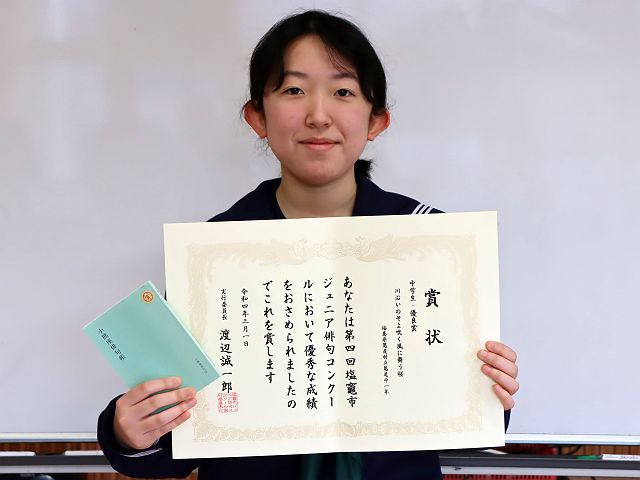 賞状
中学生・優良賞
川沿いのそよ吹く風に舞う桜
あなたは第四回塩竈市
ジュニア俳句コンクー
ルにおいて優秀な成績
をおさめられましたの
でこれを賞します
令和四年三月一日
実行委員長 渡辺誠一郎